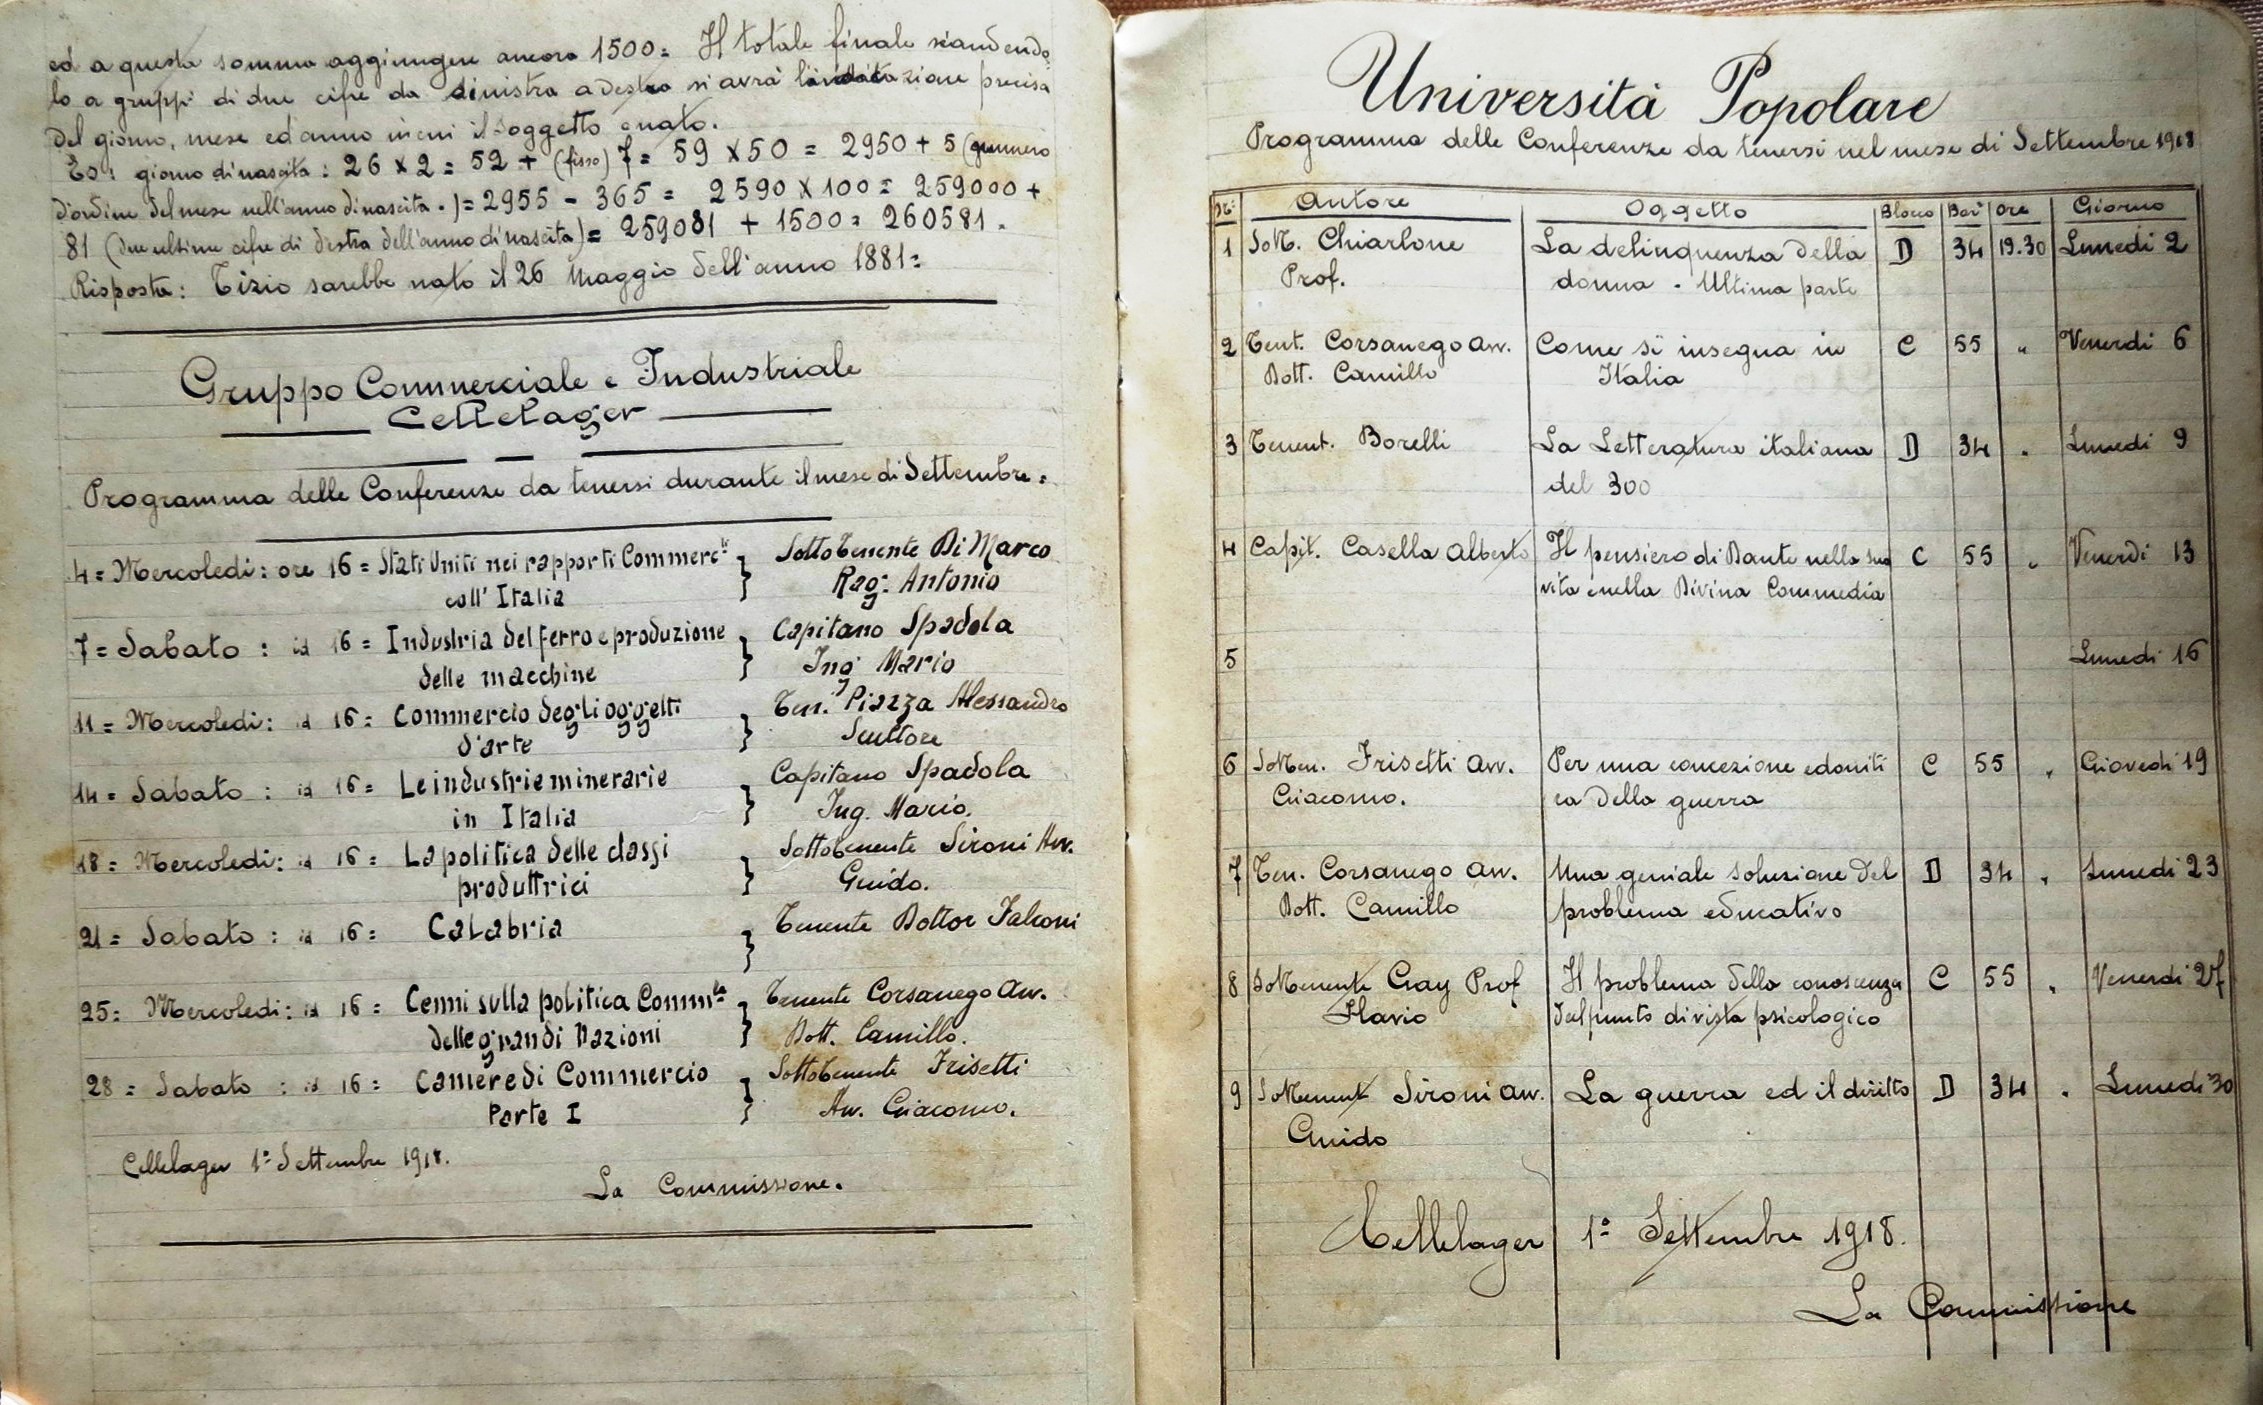 ed a questa somma aggiungere ancora 1500= Il totale finale scandendo
lo a gruppi di due cifre da sinistra a destra si avrà l'indicazione precisa
del giorno, mese ed anno in cui il soggetto è nato.
Es: giorno di nascita: 26 x 2 = 52 + (fisso) 7 = 59 x 50 = 2950 + 5 (numero
d'ordine del mese nell'anno di nascita.) = 2955 - 365 = 2590 x 100 = 259000 +
81 (due ultime cifre di destra dell'anno di nascita) = 259081 + 1500 = 260581.
Risposta: Tizio sarebbe nato il 26 Maggio dell'anno 1881=
Gruppo Commerciale e Industriale
Cellelager
Programma delle Conferenze da tenersi durante il mese di Settembre.=
4 = Mercoledi: ore 16 = Stati Uniti nei rapporti Commerc.li } Sottotenente Di Marco
coll' Italia Rag: Antonio
7 = Sabato : id 16 = Industria del ferro e produzione } Capitano Spadola
delle macchine Ing. Mario
11 = Mercoledi: id 16 = Commercio degli oggetti } Ten. Piazza Alessandro
d'arte Scultore
14 = Sabato : id 16 = Le industrie minerarie } Capitano Spadola
in Italia Ing. Mario.
18 = Mercoledi: id 16 = La politica delle classi } Sottotenente Sironi Avv.
produttrici Guido.
21 = Sabato : id 16 = Calabria } Tenente Dottor Falconi
25 = Mercoledi: id 16 = Cenni sulla politica Comm.le } Tenente Corsanego Avv.
delle grandi Nazioni Dott. Camillo.
28 = Sabato : id 16 = Camere di Commercio } Sottotenente Frisetti
Parte I Avv. Giacomo.
Cellelager 1° Settembre 1918.
La Commissione.
Università Popolare
Programma delle Conferenze da tenersi nel mese di Settembre 1918
N° Autore Oggetto Blocco Bar. ore Giorno
1 SoTt. Chiarlone La delinquenza della D 34 19.30 Lunedi 2
Prof. donna - Ultima parte
2 Tent. Corsanego Avv. Come si insegna in C 55 " Venerdi 6
Dott. Camillo Italia
3 Tenent. Borelli La Letteratura italiana D 34 " Lunedi 9
del 300
4 Capit. Casella Alberto Il pensiero di Dante nella sua C 55 " Venerdi 13
vita e nella Divina Commedia
5 Lunedi 16
6 SoTten. Frisetti Avv. Per una concezione edoniti C 55 " Giovedi 19
Giacomo. ca della guerra
7 Ten. Corsanego Avv. Una geniale soluzione del D 34 " Lunedi 23
Dott. Camillo problema educativo
8 SoTtenente Gay Prof Il problema della conoscenza C 55 " Venerdi 27
Flavio dal punto di vista psicologico
9 SoTtenent. Sironi Avv. La guerra ed il diritto D 34 " Lunedi 30
Guido
Cellelager 1° Settembre 1918.
La Commissione